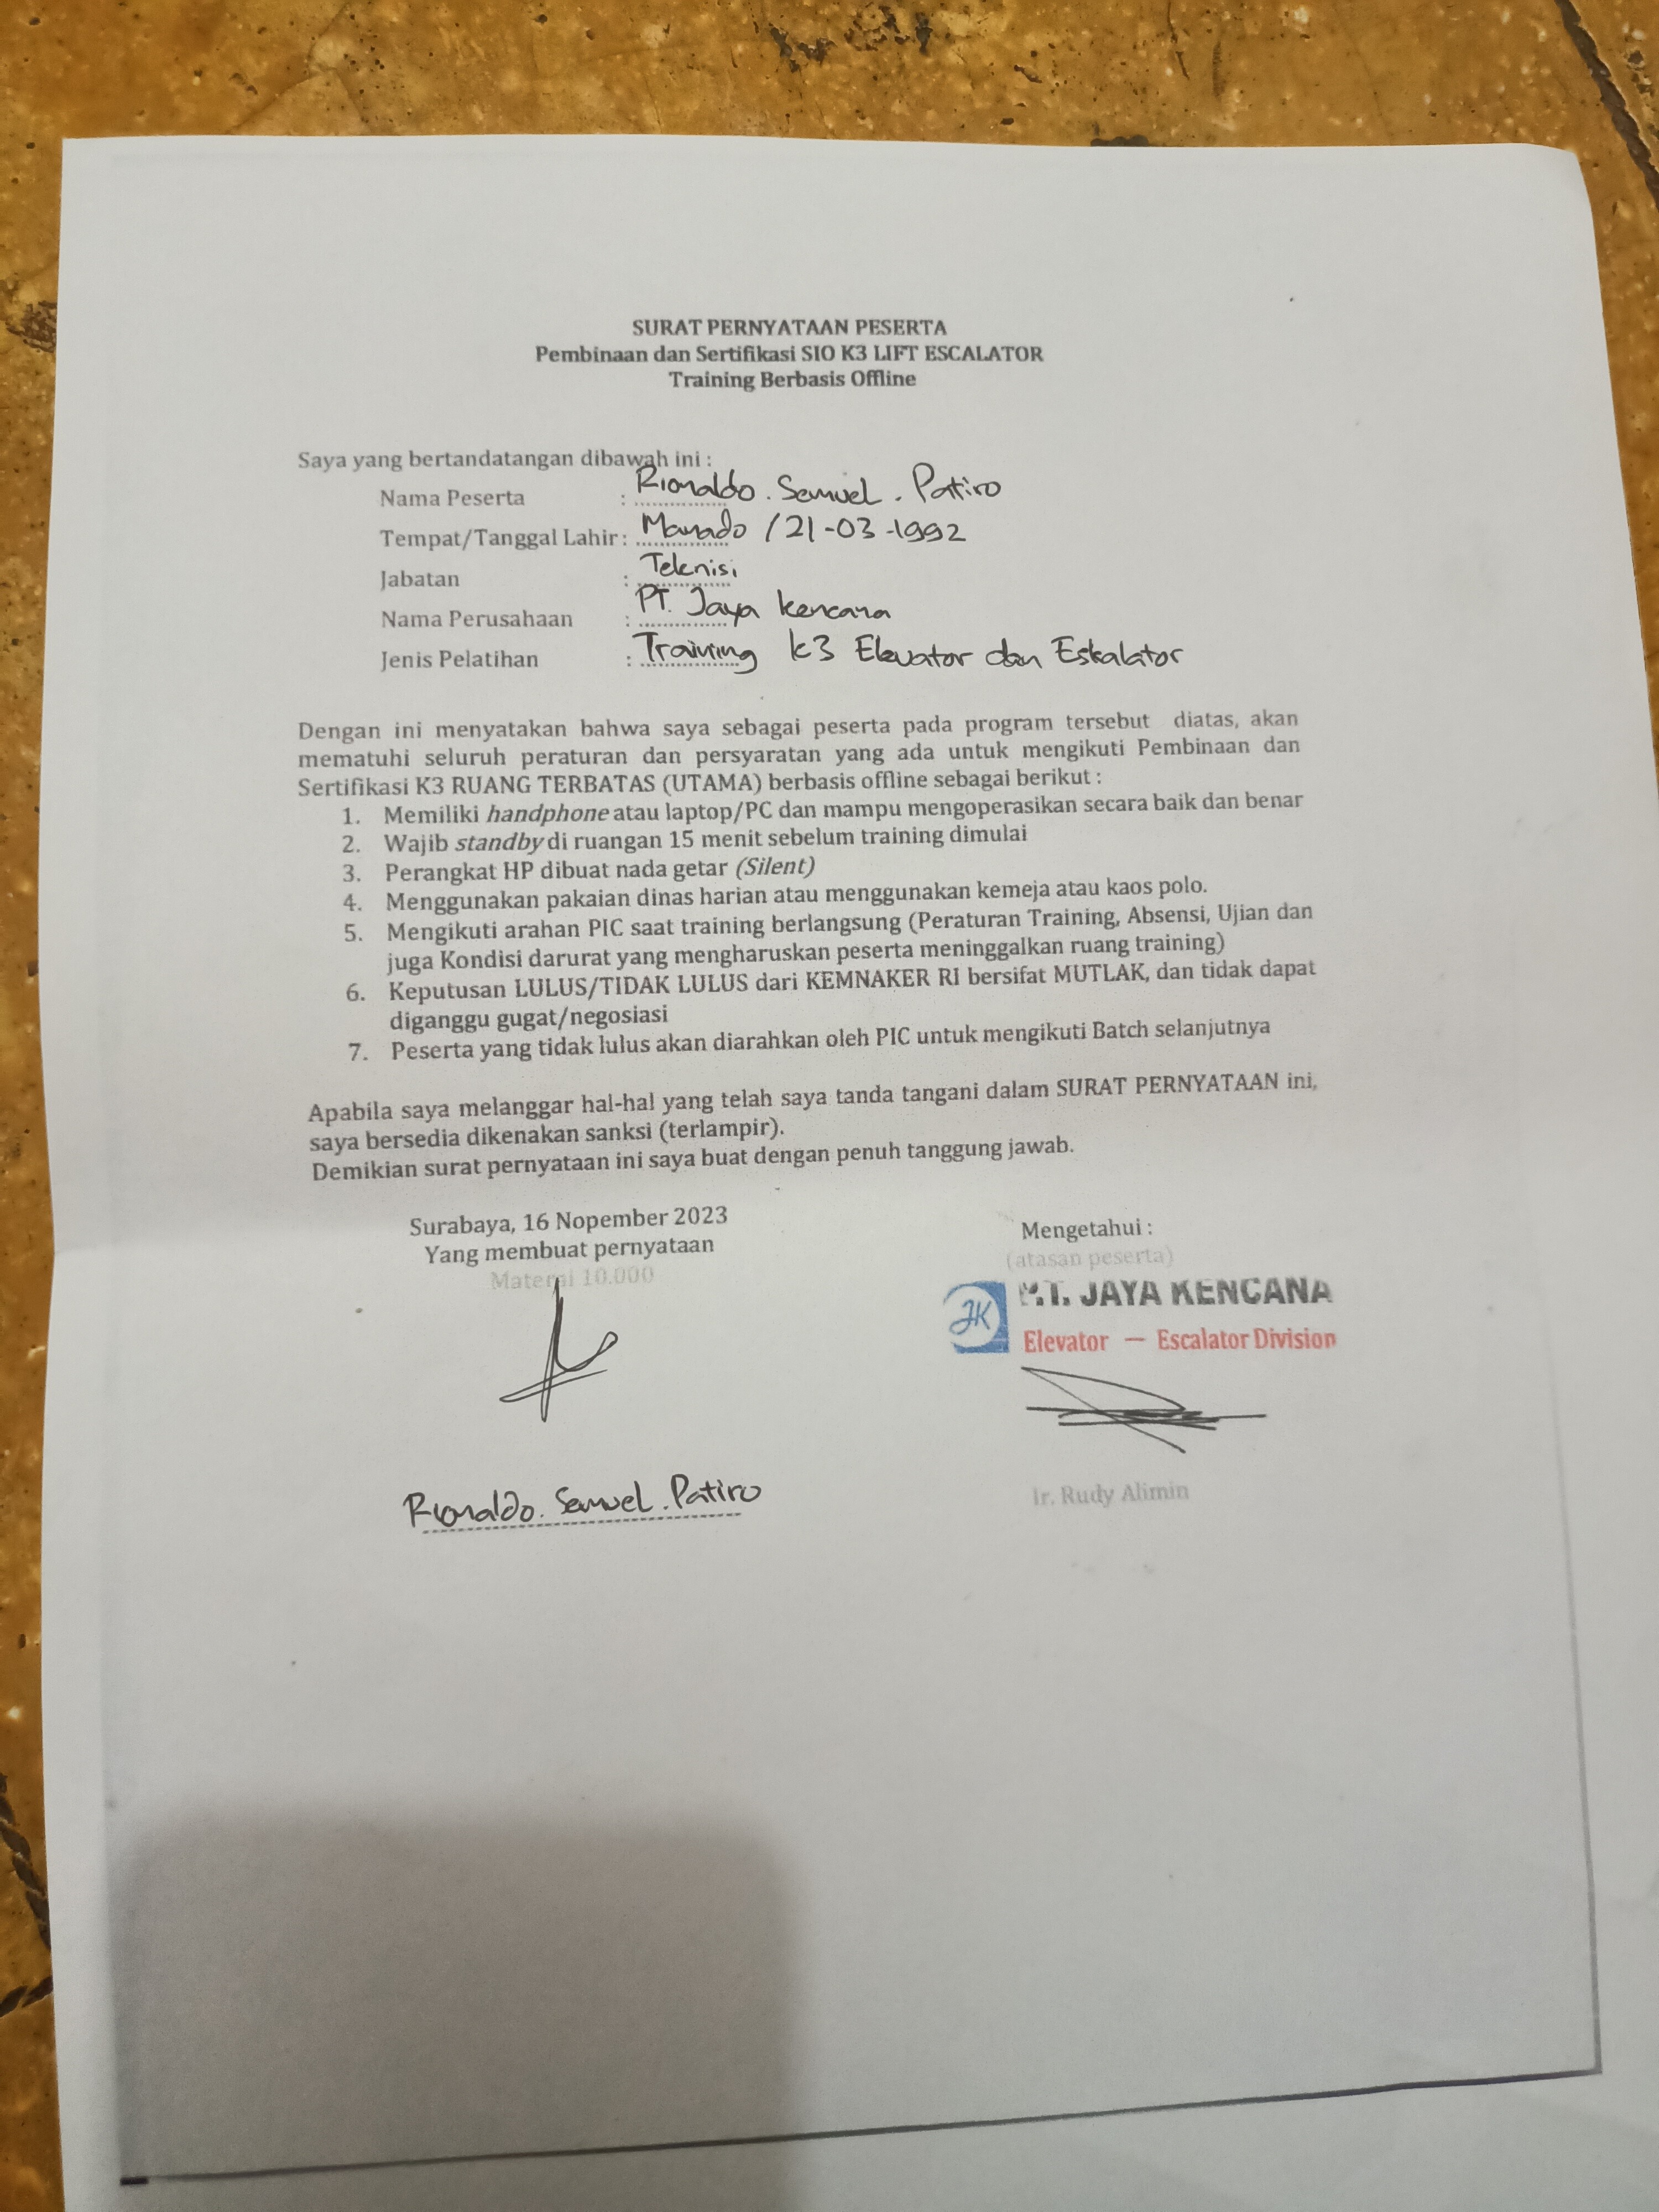 SURAT PERNYATAAN PESERTA
Pembinaan dan Sertifikasi SIO K3 LIFT ESCALATOR
Training Berbasis Offline
Saya yang bertandatangan dibawah ini :
Nama Peserta : Rionaldo . Samuel . Patiro
Tempat/Tanggal Lahir : Manado / 21-03-1992
Jabatan : Teknisi
Nama Perusahaan : PT. Jaya kencana
Jenis Pelatihan : Training k3 Elevator dan Eskalator
Dengan ini menyatakan bahwa saya sebagai peserta pada program tersebut diatas, akan
mematuhi seluruh peraturan dan persyaratan yang ada untuk mengikuti Pembinaan dan
Sertifikasi K3 RUANG TERBATAS (UTAMA) berbasis offline sebagai berikut :
1. Memiliki handphone atau laptop/PC dan mampu mengoperasikan secara baik dan benar
2. Wajib standby di ruangan 15 menit sebelum training dimulai
3. Perangkat HP dibuat nada getar (Silent)
4. Menggunakan pakaian dinas harian atau menggunakan kemeja atau kaos polo.
5. Mengikuti arahan PIC saat training berlangsung (Peraturan Training, Absensi, Ujian dan
juga Kondisi darurat yang mengharuskan peserta meninggalkan ruang training)
6. Keputusan LULUS/TIDAK LULUS dari KEMNAKER RI bersifat MUTLAK, dan tidak dapat
diganggu gugat/negosiasi
7. Peserta yang tidak lulus akan diarahkan oleh PIC untuk mengikuti Batch selanjutnya
Apabila saya melanggar hal-hal yang telah saya tanda tangani dalam SURAT PERNYATAAN ini,
saya bersedia dikenakan sanksi (terlampir).
Demikian surat pernyataan ini saya buat dengan penuh tanggung jawab.
Surabaya, 16 Nopember 2023
Yang membuat pernyataan
Materai 10.000
Rionaldo. Samuel. Patiro
Mengetahui :
(atasan peserta)
JK P.T. JAYA KENCANA
Elevator — Escalator Division
Ir. Rudy Alimin